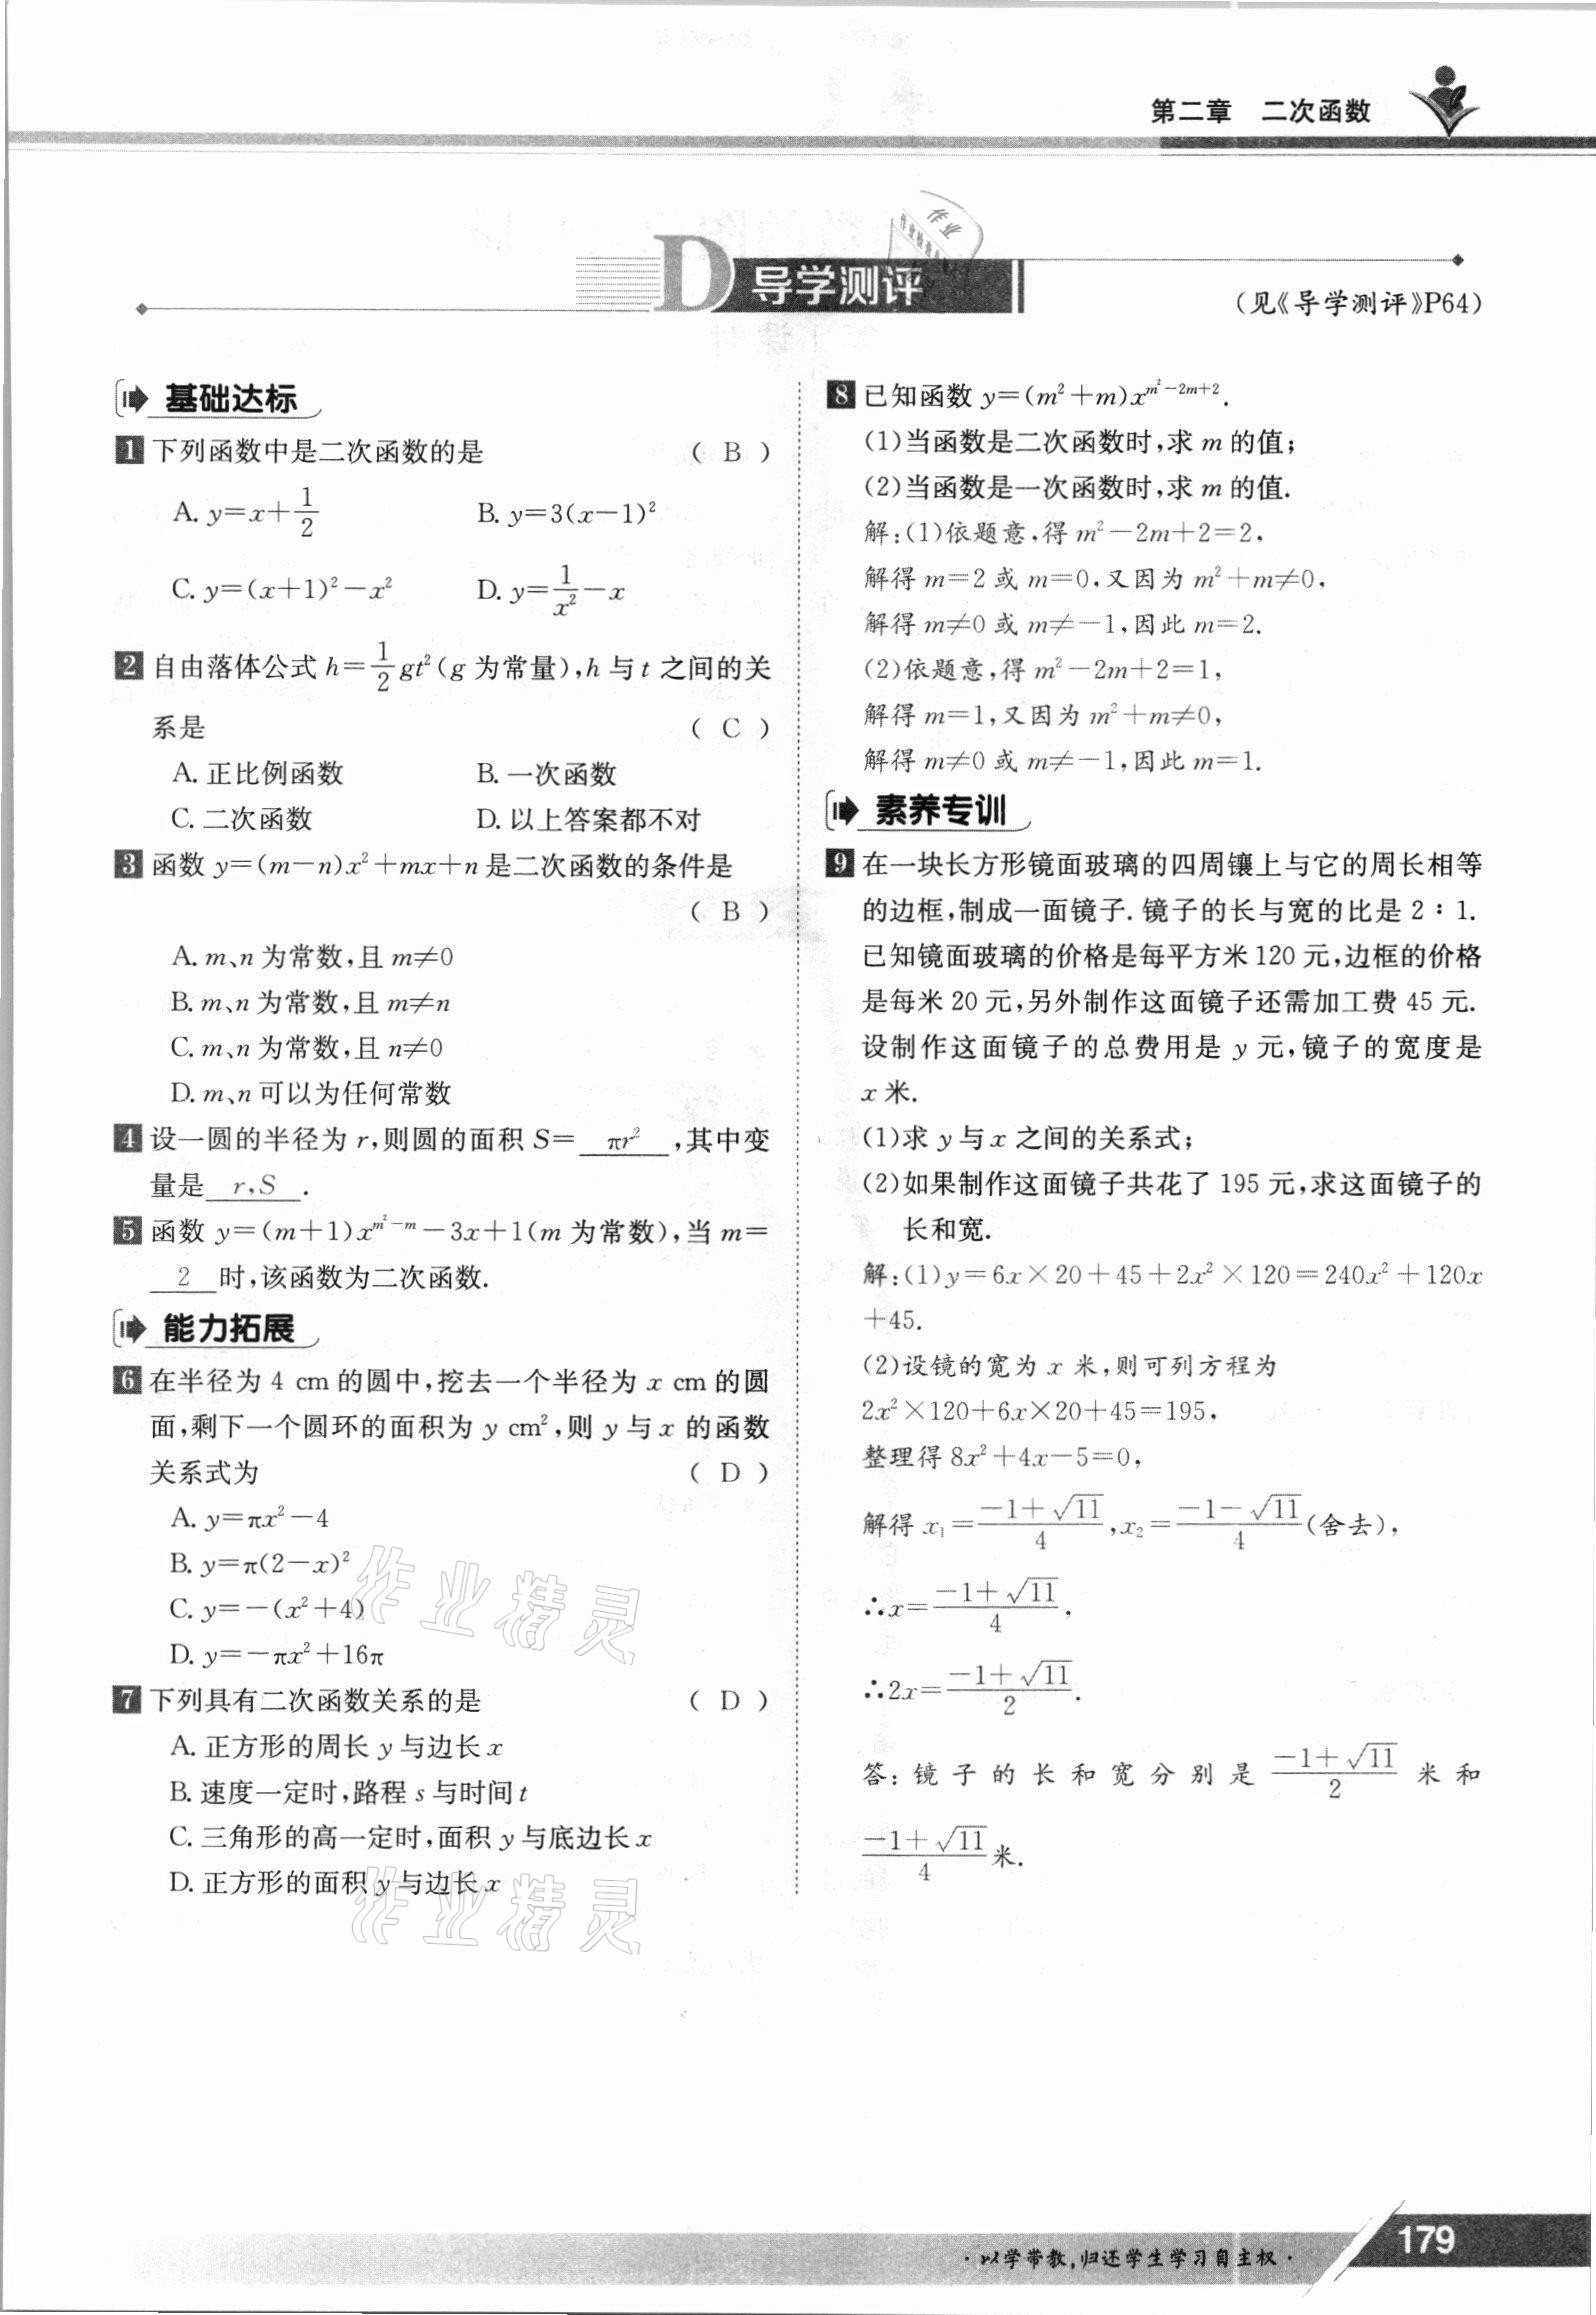 第二章 二次函数
D 导学测评
(见《导学测评》P64)
基础达标
1 下列函数中是二次函数的是 ( B )
A. y=x+1/2 B. y=3(x-1)²
C. y=(x+1)²-x² D. y=1/x²-x
2 自由落体公式 h=1/2gt²(g 为常量),h 与 t 之间的关
系是 ( C )
A. 正比例函数 B. 一次函数
C. 二次函数 D. 以上答案都不对
3 函数 y=(m-n)x²+mx+n 是二次函数的条件是
( B )
A. m、n 为常数,且 m≠0
B. m、n 为常数,且 m≠n
C. m、n 为常数,且 n≠0
D. m、n 可以为任何常数
4 设一圆的半径为 r,则圆的面积 S= πr² ,其中变
量是 r,S .
5 函数 y=(m+1)x^(m²-m)-3x+1(m 为常数),当 m=
2 时,该函数为二次函数.
能力拓展
6 在半径为 4 cm 的圆中,挖去一个半径为 x cm 的圆
面,剩下一个圆环的面积为 y cm²,则 y 与 x 的函数
关系式为 ( D )
A. y=πx²-4
B. y=π(2-x)²
C. y=-(x²+4)
D. y=-πx²+16π
7 下列具有二次函数关系的是 ( D )
A. 正方形的周长 y 与边长 x
B. 速度一定时,路程 s 与时间 t
C. 三角形的高一定时,面积 y 与底边长 x
D. 正方形的面积 y 与边长 x
8 已知函数 y=(m²+m)x^(m²-2m+2).
(1)当函数是二次函数时,求 m 的值;
(2)当函数是一次函数时,求 m 的值.
解:(1)依题意,得 m²-2m+2=2,
解得 m=2 或 m=0,又因为 m²+m≠0,
解得 m≠0 或 m≠-1,因此 m=2.
(2)依题意,得 m²-2m+2=1,
解得 m=1,又因为 m²+m≠0,
解得 m≠0 或 m≠-1,因此 m=1.
素养专训
9 在一块长方形镜面玻璃的四周镶上与它的周长相等
的边框,制成一面镜子. 镜子的长与宽的比是 2∶1.
已知镜面玻璃的价格是每平方米 120 元,边框的价格
是每米 20 元,另外制作这面镜子还需加工费 45 元.
设制作这面镜子的总费用是 y 元,镜子的宽度是
x 米.
(1)求 y 与 x 之间的关系式;
(2)如果制作这面镜子共花了 195 元,求这面镜子的
长和宽.
解:(1)y=6x×20+45+2x²×120=240x²+120x
+45.
(2)设镜的宽为 x 米,则可列方程为
2x²×120+6x×20+45=195,
整理得 8x²+4x-5=0,
解得 x₁=(-1+√11)/4,x₂=(-1-√11)/4(舍去),
∴x=(-1+√11)/4.
∴2x=(-1+√11)/2.
答:镜子的长和宽分别是(-1+√11)/2 米和
(-1+√11)/4米.
作业精灵
作业精灵
·以学带教,归还学生学习自主权·
179